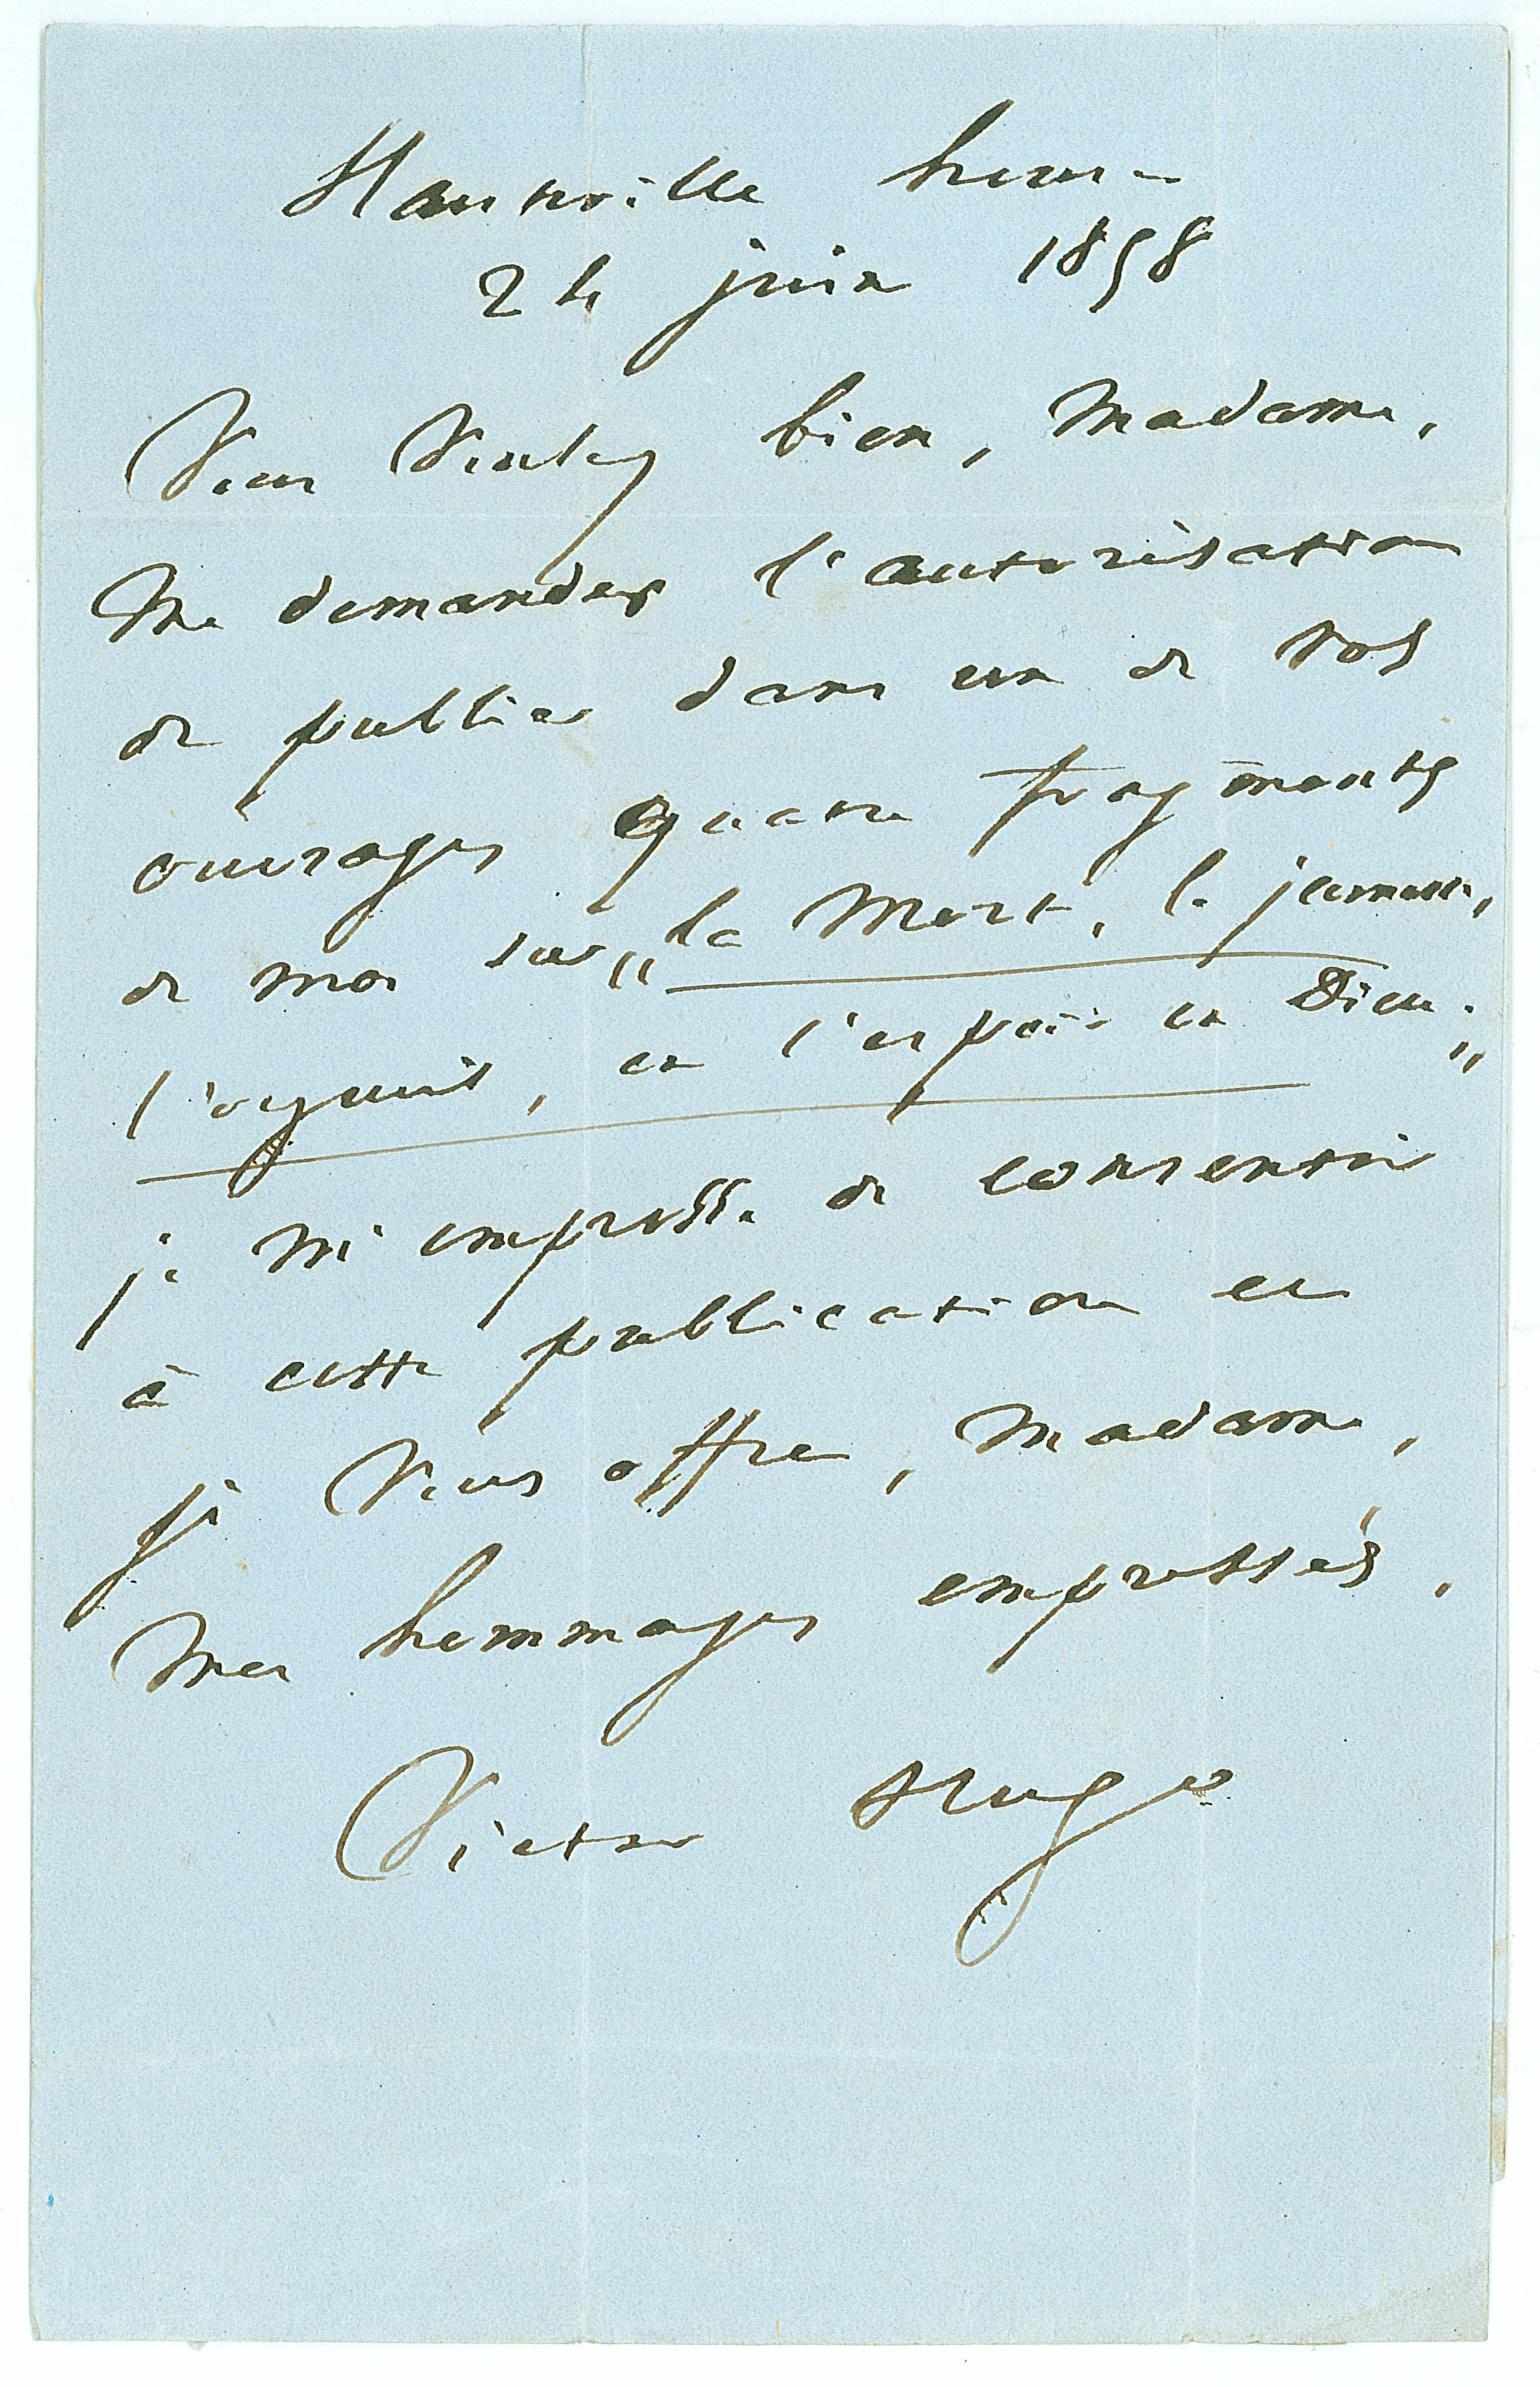 Hauteville house
24 juin 1858
Vous voulez bien, Madame,
me demander l'autorisation
de publier dans un de vos
ouvrages quatre fragments
de moi sur "la mort, la jeunesse,
l'orgueil, et l'espoir en Dieu"
je m'empresse de consentir
à cette publication et
je vous offre, Madame,
mes hommages empressés.
Victor Hugo